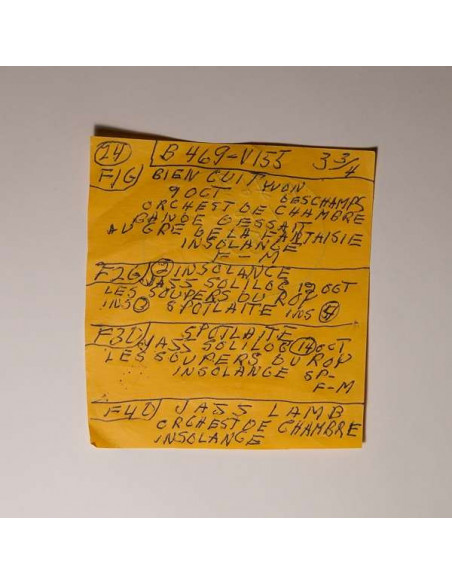 24 B 469-V155 3 3/4
F1G BIEN CUIT YVON
9 OCT DESCHAMPS
ORCHEST DE CHAMBRE
BANDE DESSAIT
AU GRE DE LA FANTAISIE
INSOLANGE
F-M
F2G 2 INSOLANGE
JASS SOLILOQ 19 OCT
LES SOUPERS DU ROY
INS 2 SPOTLAITE INS 4
F3D SPOTLAITE
JASS SOLILOQ 19 OCT
LES SOUPERS DU ROY
INSOLANGE SP-
F-M
F4D JASS LAMB
ORCHEST DE CHAMBRE
INSOLANGE